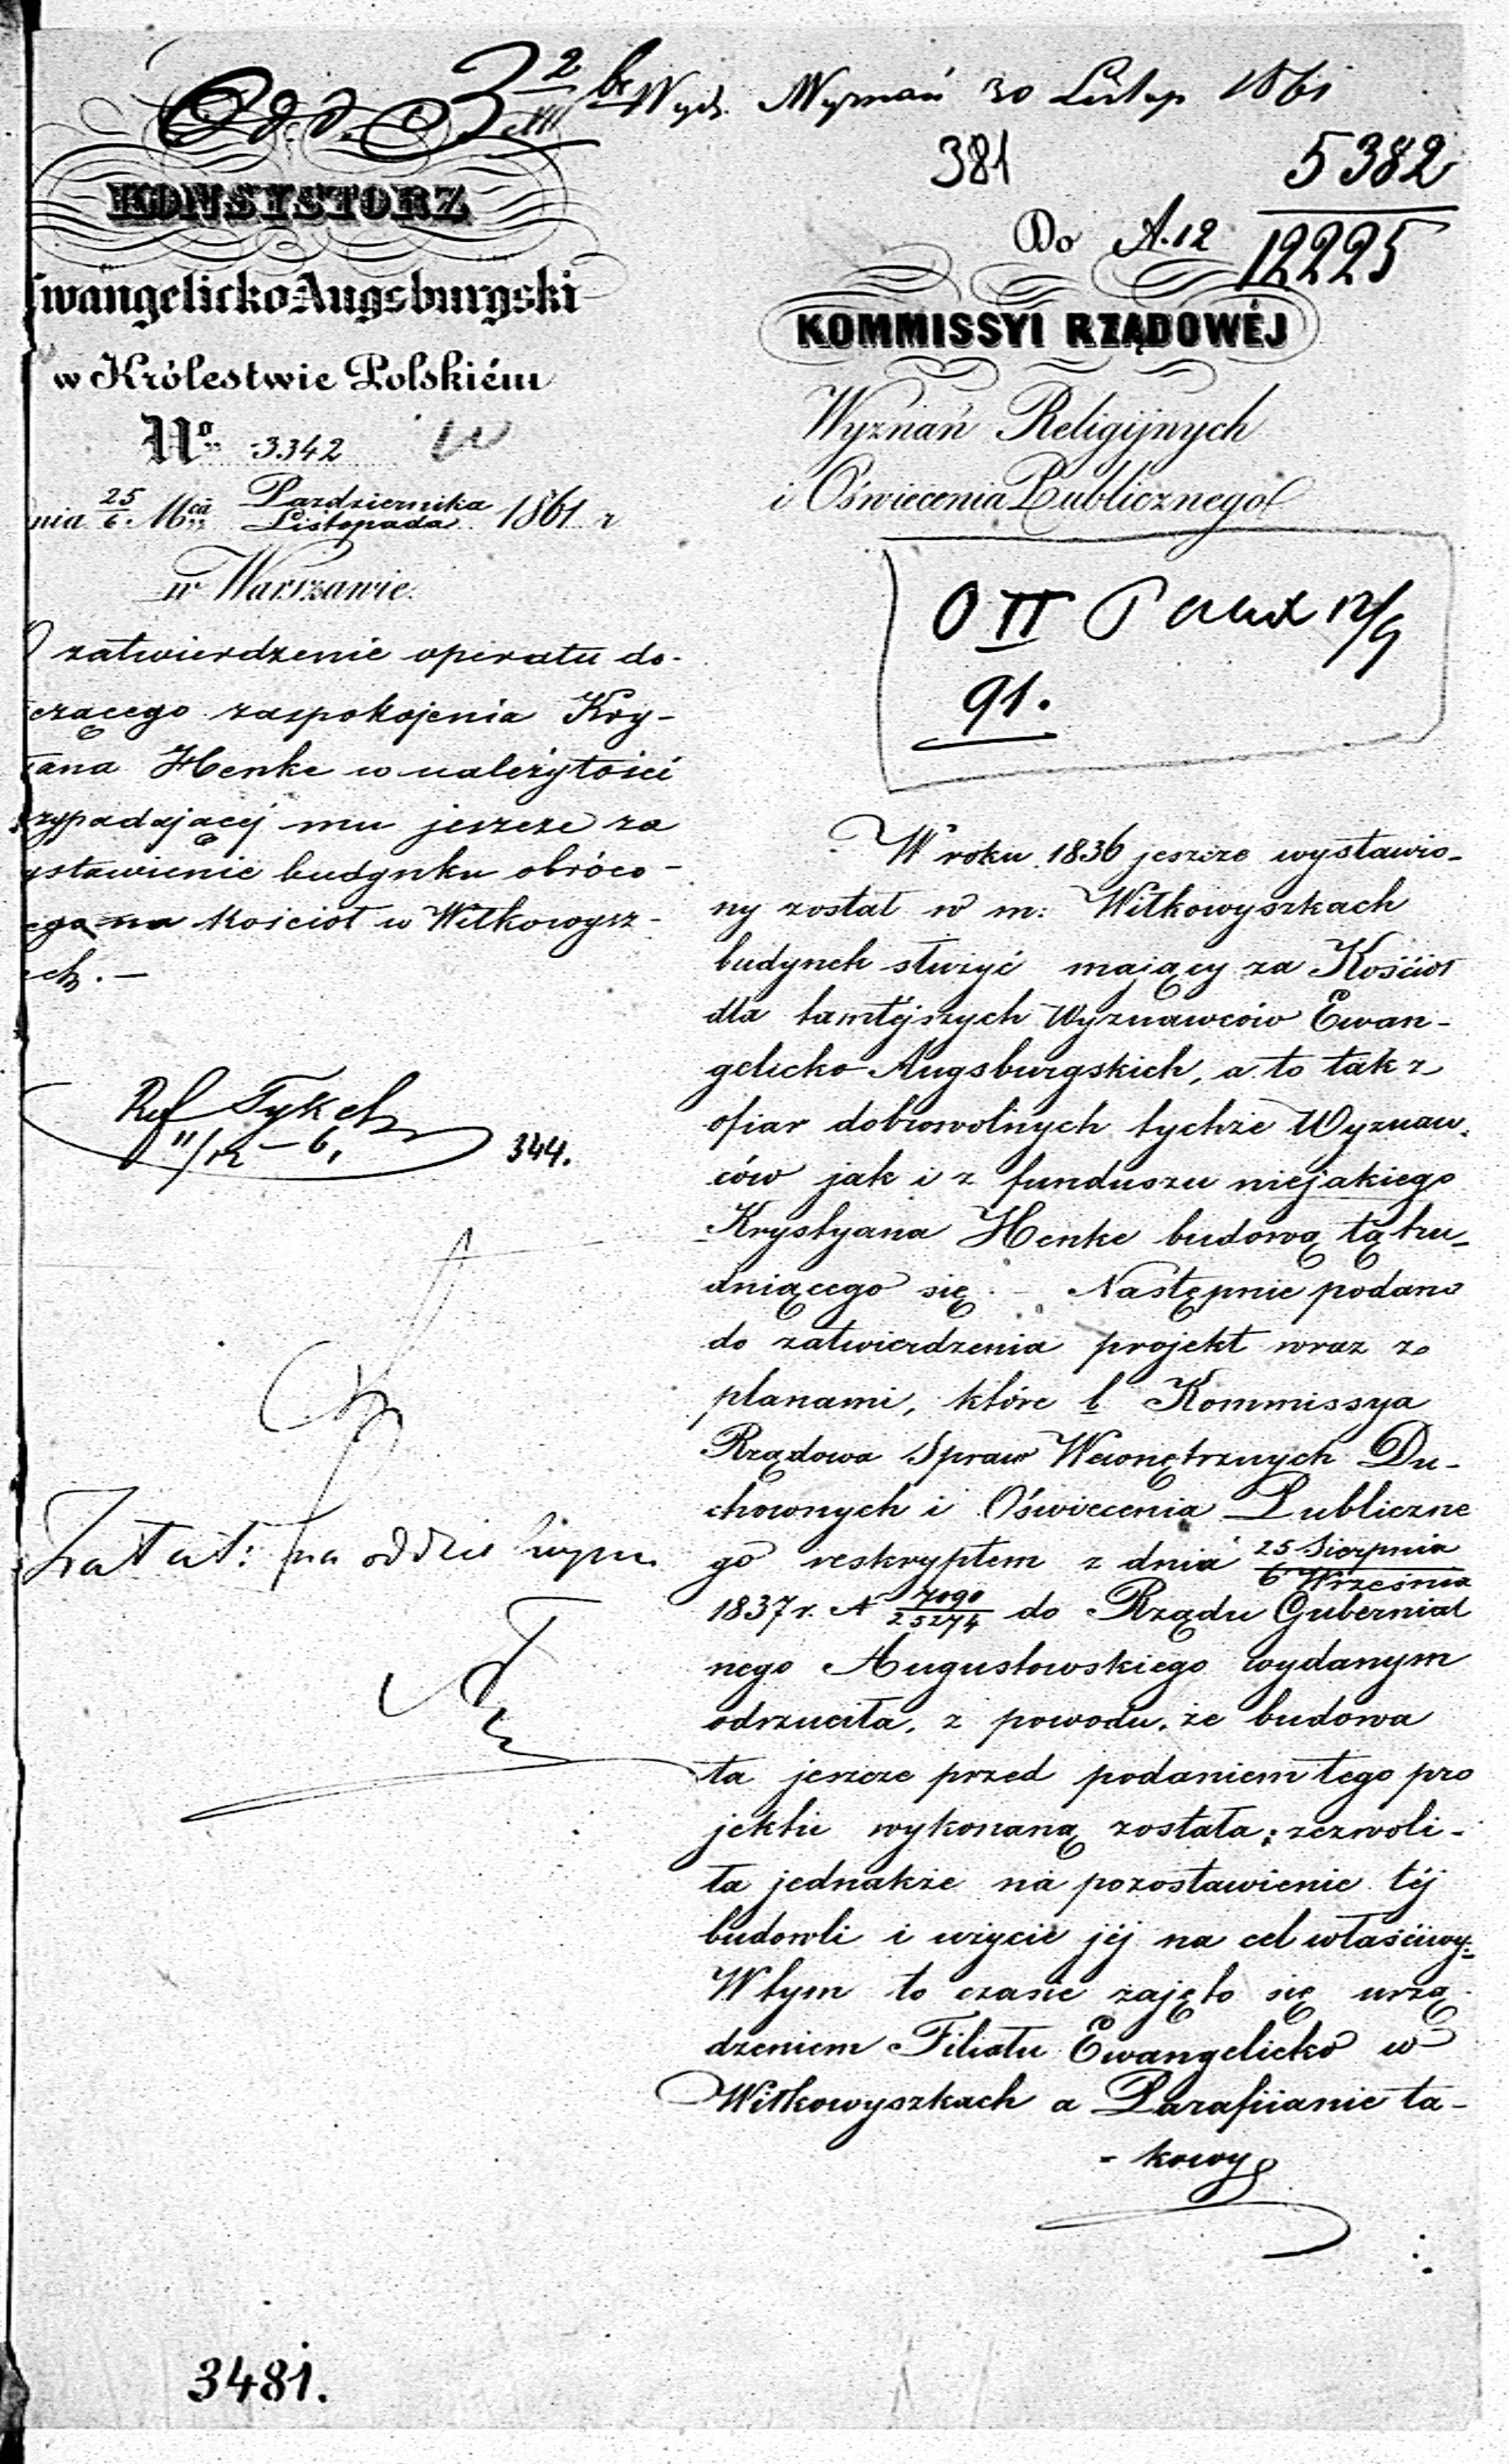 Wydz. Wyznań 30 Listop 1861
381
5382
12225
Do A. 12
KONSYSTORZ
Ewangelicko-Augsburgski
w Królestwie Polskiém
No 3342
nia 25/6 Mca Pazdziernika/Listopada 1861 r
w Warszawie.
O zatwierdzenie operatu do-
czącego zaspokojenia Kry-
ana Henke w należytości
rzypadającéj mu jeszcze za
ystawienie budynku obróco-
ego na Kościoł w Wiłkowysz-
ach. –
Ref Tykel
11/12 – 6,
344.
3481.
KOMMISSYI RZĄDOWÉJ
Wyznań Religijnych
i Oświecenia Publicznego
O II
91.
W roku 1836 jeszcze wystawio-
ny został w m: Wiłkowyszkach
budynek służyć mający za Kościoł
dla tamtéjszych Wyznawców Ewan-
gelicko Augsburgskich, a to tak z
ofiar dobrowolnych tychże Wyznaw-
ców jak i z funduszu niejakiego
Krystyana Henke budową tą tru-
dniącego się. – Następnie podano
do zatwierdzenia projekt wraz z
planami, które b. Kommissya
Rządowa Spraw Wewnętrznych Du-
chownych i Oświecenia Publiczne
go reskryptem z dnia 25 Sierpnia/6 Września
1837 r. N 7090/25274 do Rządu Gubernial
nego Augustowskiego wydanym
odrzuciła, z powodu, że budowa
ta jeszcze przed podaniem tego pro
jektu wykonaną została; zezwoli-
ła jednakże na pozostawienie téj
budowli i użycie jéj na cel właściwy.
W tym to czasie zajęto się urzą
dzeniem Filiału Ewangelicko w
Wiłkowyszkach a Parafiianie ta-
- kowy